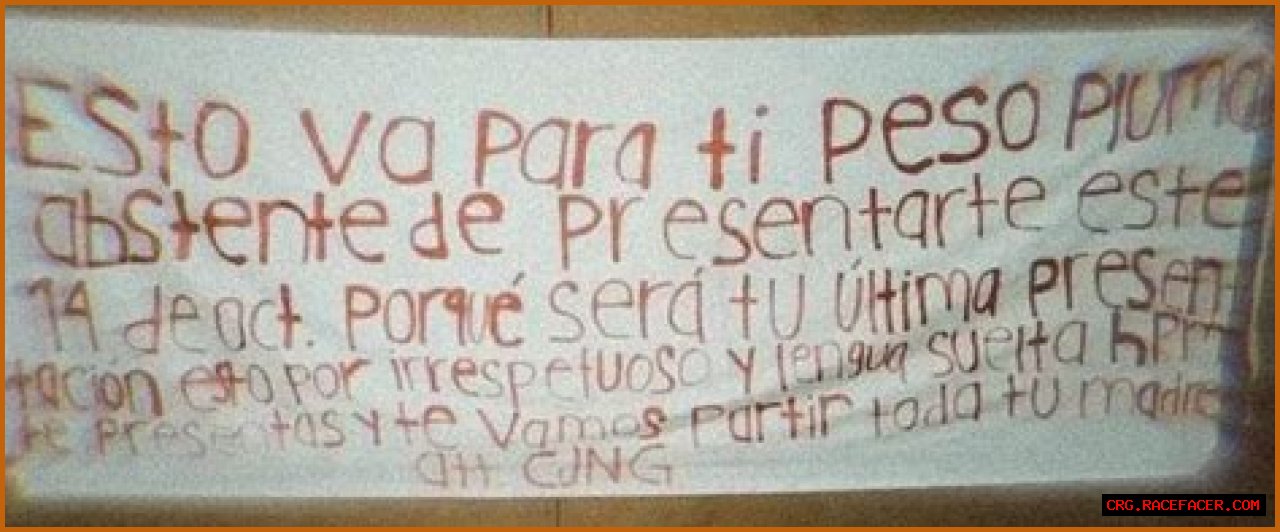 Esto va para ti peso pluma
abstente de presentarte este
14 de oct. porqué será tu última presen-
tacion esto por irrespetuoso y lengua suelta hpm
te presentas y te vamos partir toda tu madre
att CJNG
CRG.RACEFACER.COM